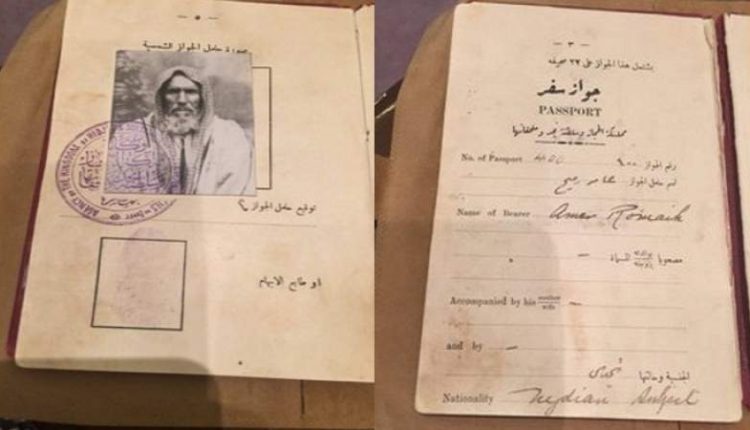 — ٥ —
صورة حامل الجواز الشمسية
توقيع حامل الجواز
او طابع الابهام
— ٣ —
يشتمل هذا الجواز على ٣٢ صحيفه
جواز سفر
PASSPORT
مملكة الحجاز وسلطنة نجد وملحقاتها
No. of Passport
رقم الجواز
اسم حامل الجواز عامر رميح
Name of Bearer Amer Romaih
مصحوبا
Accompanied by his mother
wife
and by —
الجنسية وحالتها نجدي
Nationality Nejdian Subject